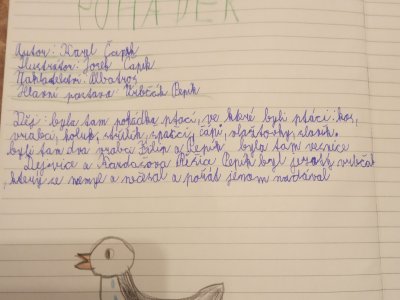 POHÁDEK
Autor: Karel Čapek
Ilustrátor: Josef Čapek
Nakladatelství: Albatros
Hlavní postava Vrbčák Pepík
Děj: byla tam pohádka ptačí, ve které byli ptáci: kos,
vrabci, holub, střízlík, špačci, čápi, vlaštovky, slavík.
byli tam dva vrabci Filip a Pepík byla tam vesnice
Dejvice a Kardašova Řečice Pepík byl
který se nemyl a nečesal a pořád jenom nadával